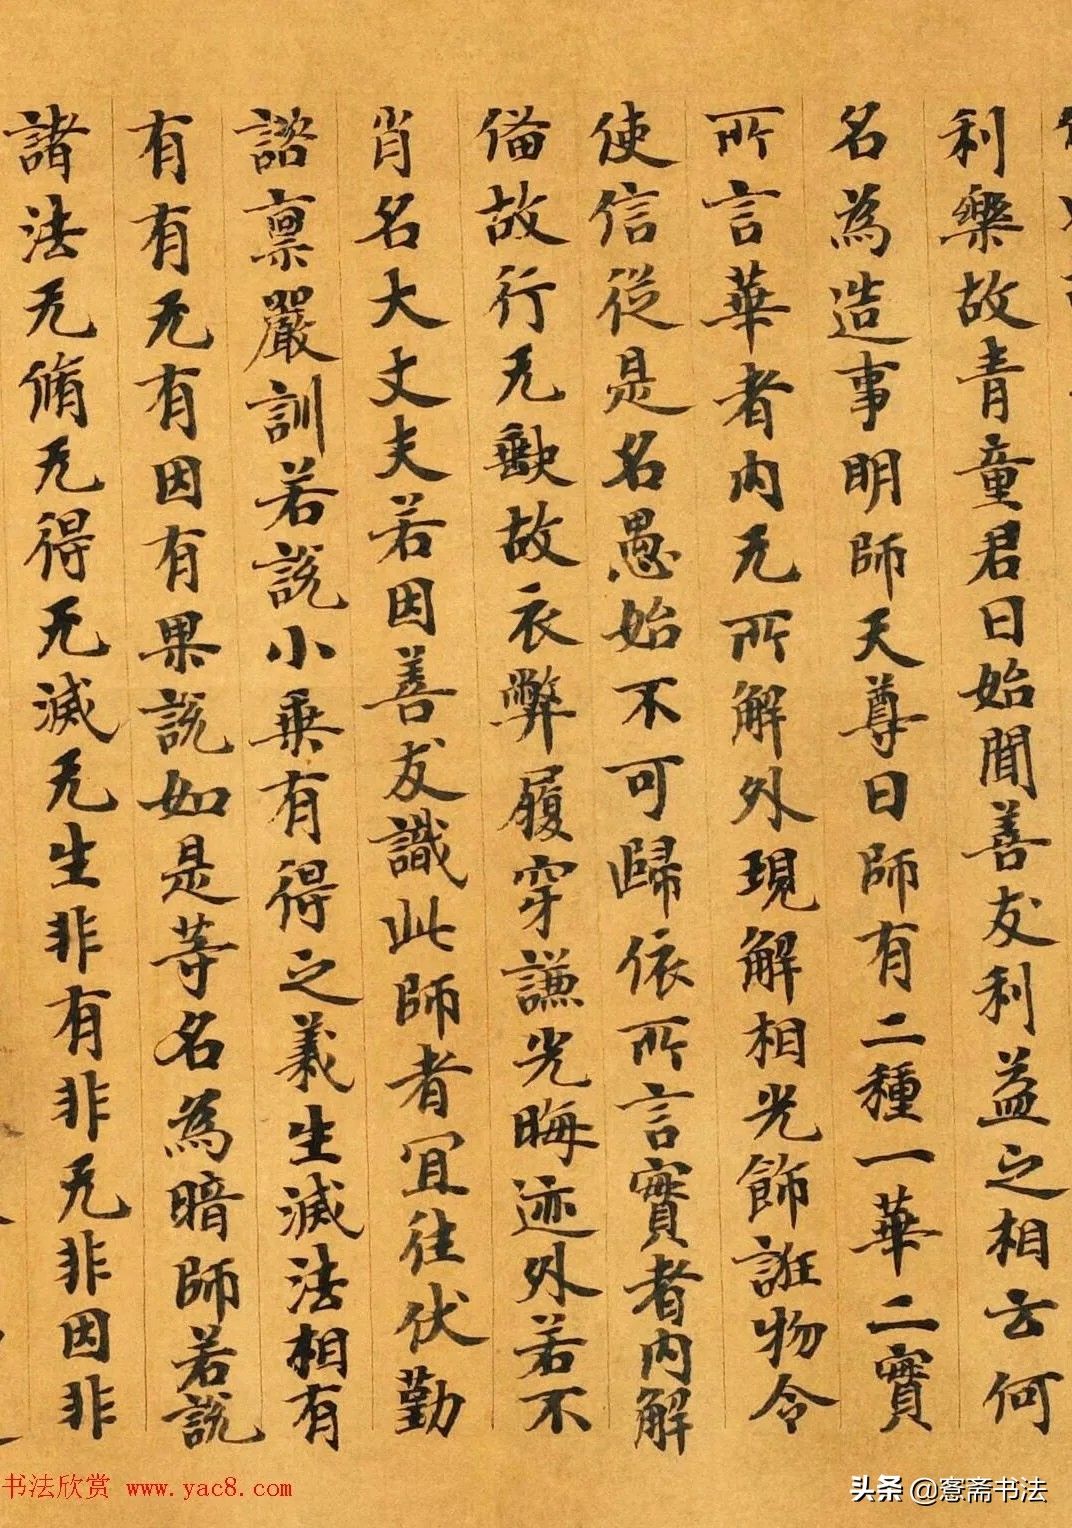 利樂故青童君曰始聞善友利益之相云何
名為造事明師天尊曰師有二種一華二實
所言華者內无所解外現解相光飾誑物令
使信從是名愚始不可歸依所言實者內解
俻故行无歝故衣弊履穿謙光晦迹外若不
肖名大丈夫若因善友識此師者宜往伏勤
諮禀嚴訓若說小乗有得之義生滅法相有
有有无有因有果說如是等名為暗師若說
諸法无脩无得无滅无生非有非无非因非
书法欣赏 www.yac8.com
头条 @愙斋书法